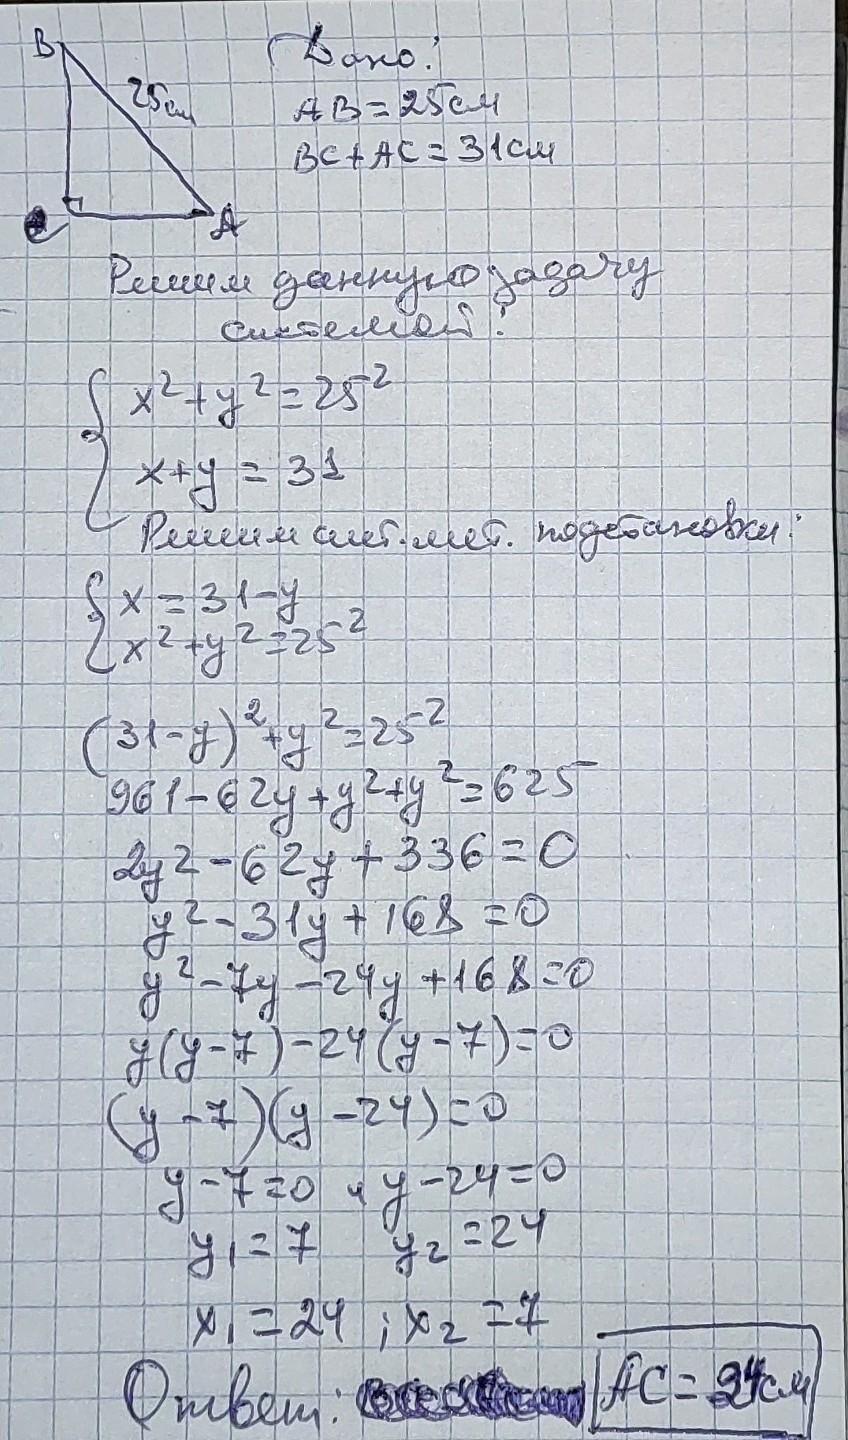 B
25см
C
A
Дано:
AB = 25см
BC + AC = 31см
Решим данную задачу
системой:
x² + y² = 25²
x + y = 31
Решим сист. мет. подстановки:
x = 31 - y
x² + y² = 25²
(31 - y)² + y² = 25²
961 - 62y + y² + y² = 625
2y² - 62y + 336 = 0
y² - 31y + 168 = 0
y² - 7y - 24y + 168 = 0
y(y - 7) - 24(y - 7) = 0
(y - 7)(y - 24) = 0
y - 7 = 0 и y - 24 = 0
y₁ = 7 y₂ = 24
x₁ = 24 ; x₂ = 7
Ответ: AC = 24см